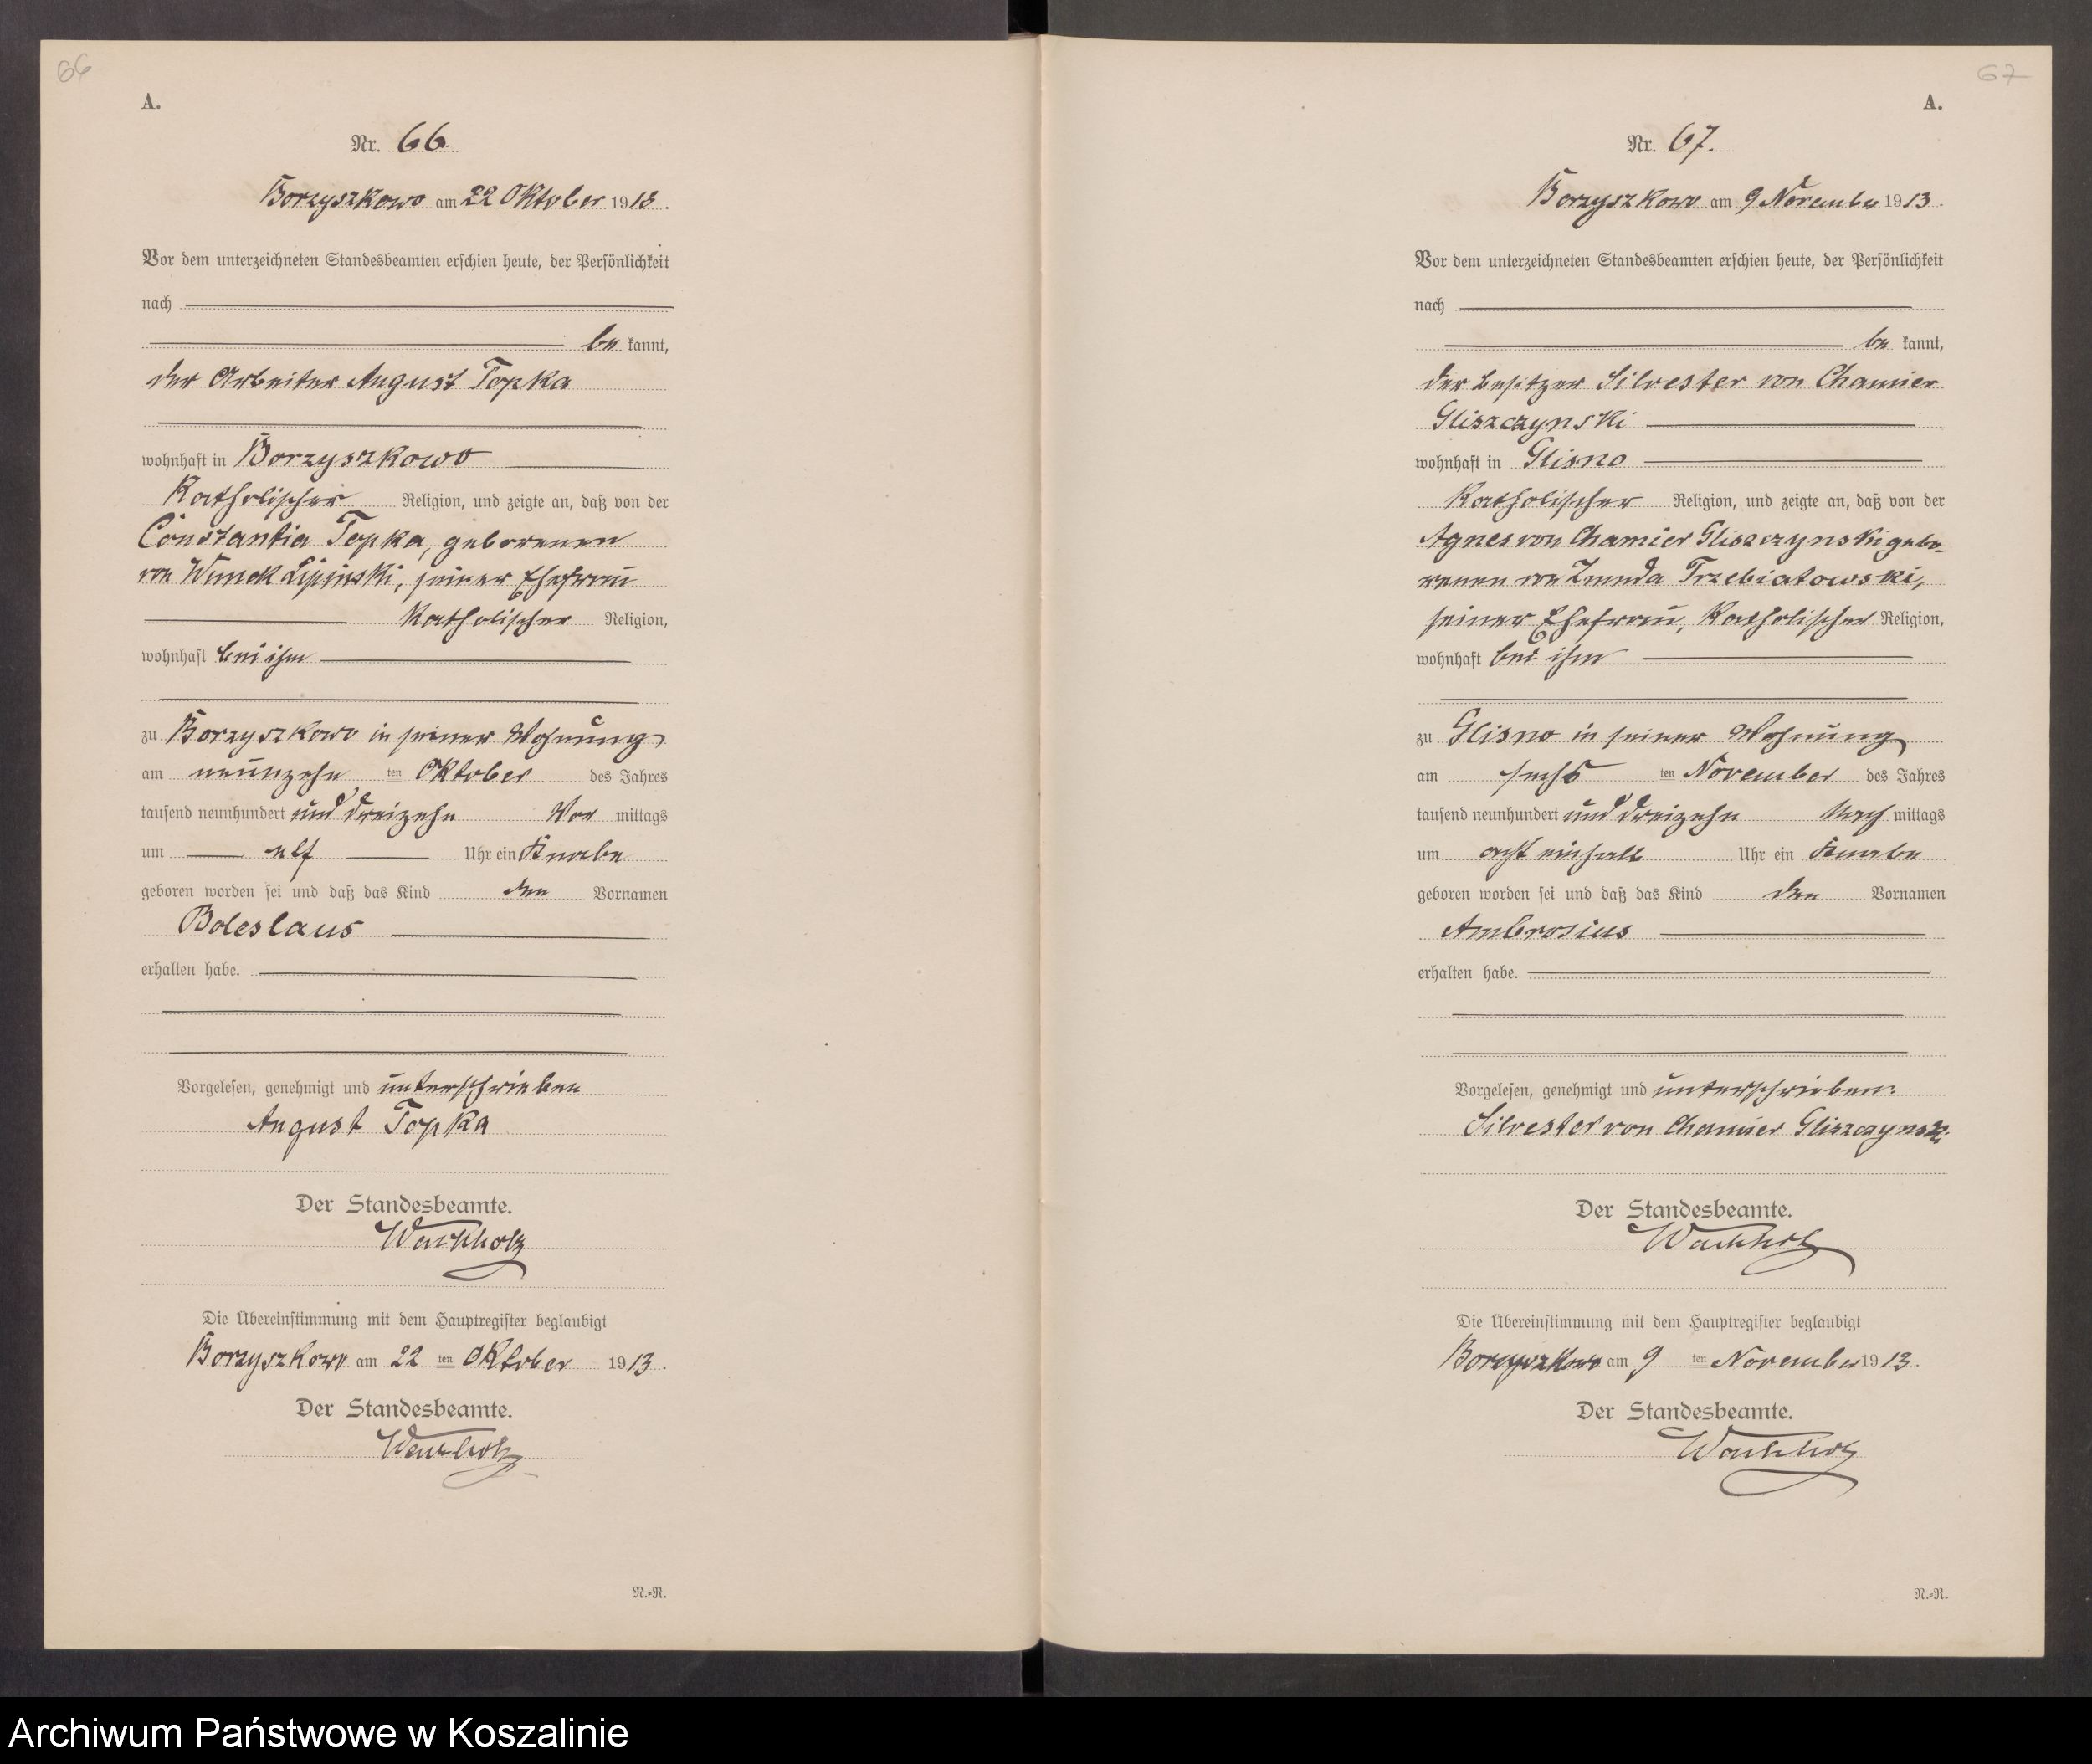 66
A.
Nr. 66.
Borzyszkowo am 22 Oktober 1913.
Vor dem unterzeichneten Standesbeamten erschien heute, der Persönlichkeit
nach
be kannt,
der Arbeiter August Topka
wohnhaft in Borzyszkowo
katholischer Religion, und zeigte an, daß von der
Constantia Topka, geborenen
von Wnuck Lipinski, seiner Ehefrau
katholischer Religion,
wohnhaft bei ihm
zu Borzyszkowo in seiner Wohnung
am neunzehn ten Oktober des Jahres
tausend neunhundert und dreizehn Vor mittags
um elf Uhr ein Knabe
geboren worden sei und daß das Kind den Vornamen
Boleslaus
erhalten habe.
Vorgelesen, genehmigt und unterschrieben
August Topka
Der Standesbeamte.
Wachholz
Die Übereinstimmung mit dem Hauptregister beglaubigt
Borzyszkowo am 22 ten Oktober 1913.
Der Standesbeamte.
Wachholz
N.-R.
67
A.
Nr. 67.
Borzyszkowo am 9 November 1913.
Vor dem unterzeichneten Standesbeamten erschien heute, der Persönlichkeit
nach
be kannt,
der Besitzer Silvester von Chamier
Gliszczynski
wohnhaft in Glisno
katholischer Religion, und zeigte an, daß von der
Agnes von Chamier Gliszczynski gebo-
renen von Zmuda Trzebiatowski,
seiner Ehefrau, katholischer Religion,
wohnhaft bei ihm
zu Glisno in seiner Wohnung
am sechs ten November des Jahres
tausend neunhundert und dreizehn Nach mittags
um acht einhalb Uhr ein Knabe
geboren worden sei und daß das Kind den Vornamen
Ambrosius
erhalten habe.
Vorgelesen, genehmigt und unterschrieben.
Silvester von Chamier Gliszczynski
Der Standesbeamte.
Wachholz
Die Übereinstimmung mit dem Hauptregister beglaubigt
Borzyszkowo am 9 ten November 1913.
Der Standesbeamte.
Wachholz
N.-R.
Archiwum Państwowe w Koszalinie